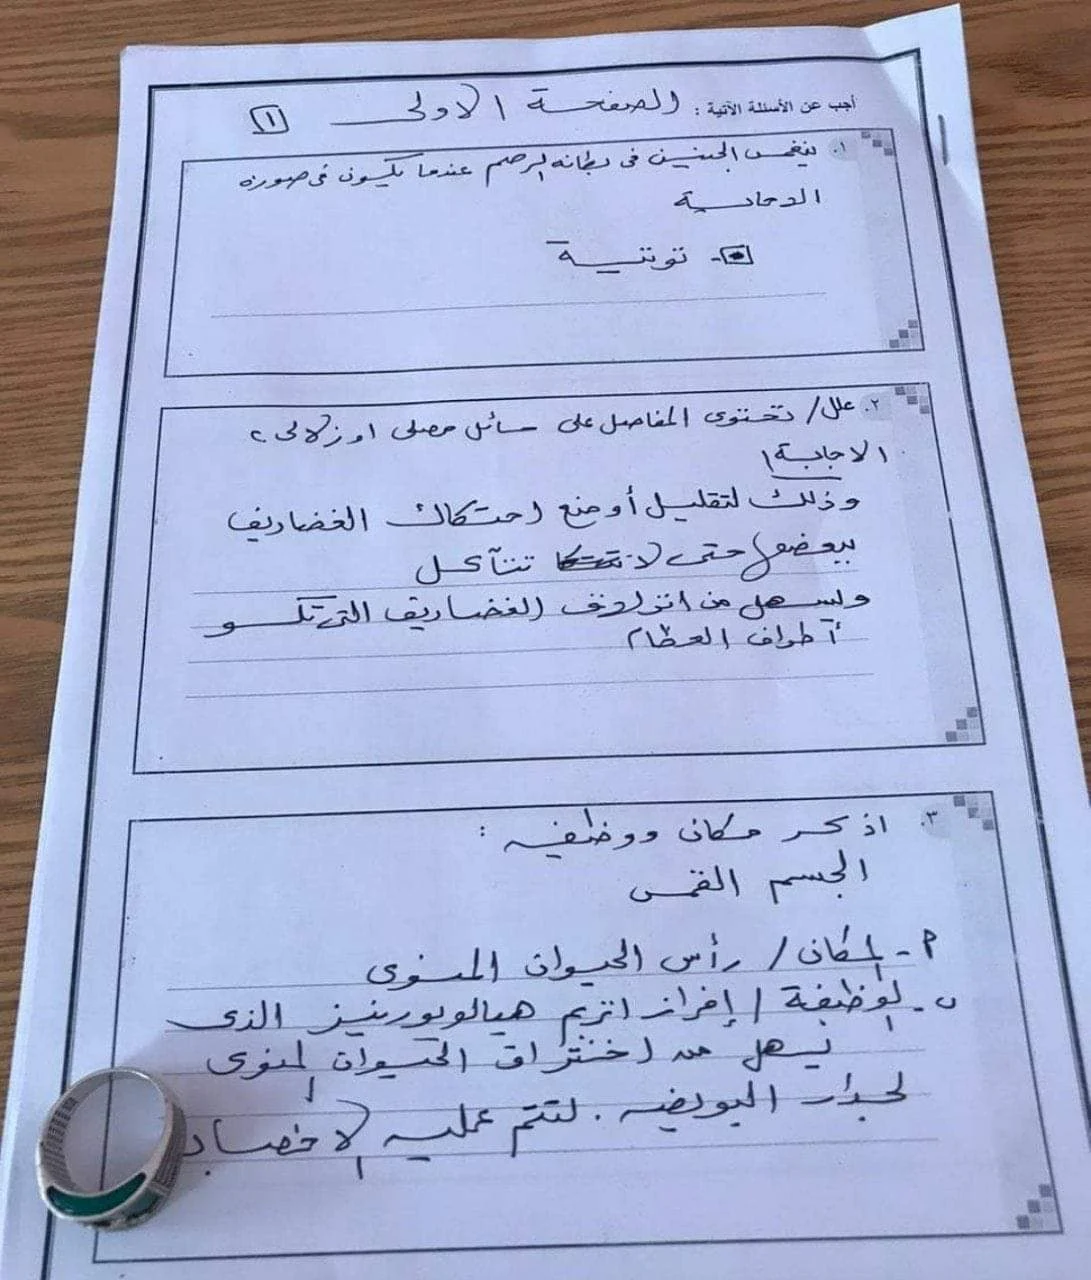 أجب عن الأسئلة الآتية : الصفحة الاولى ١
١. ينغمس الجنين في بطانه الرحم عندما يكون في صورة
التوتية
- توتية
٢. علل/ تحتوى المفاصل على سائل مصلى او زلالى ؟
الاجابة /
وذلك لتقليل أو منع احتكاك الغضاريف
ببعضها حتى لا تتآكل
ويسهل من انزلاق الغضاريف التى تكسو
أطراف العظام
٣. اذكر مكان ووظفيه :
الجسم القمى
P - المكان / رأس الحيوان المنوى
ب - الوظيفة / إفراز انزيم هيالويورينيز الذى
يسهل من اختراق الحيوان المنوى
لجدار البويضه . لتتم عمليه الاخصاب